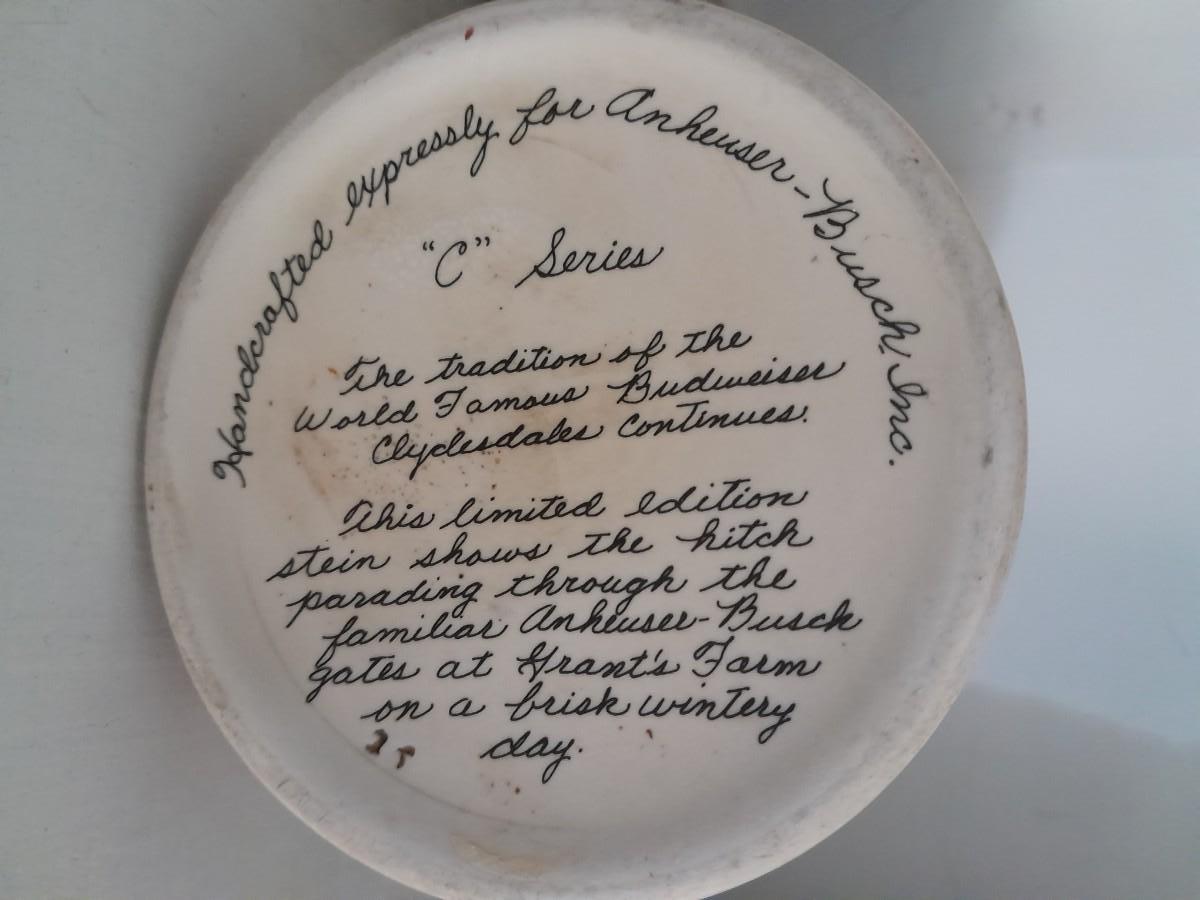 Handcrafted expressly for Anheuser-Busch, Inc.
"C" Series
The tradition of the
World Famous Budweiser
Clydesdales Continues.
This limited edition
stein shows the hitch
parading through the
familiar Anheuser-Busch
gates at Grant's Farm
on a brisk wintery
day.